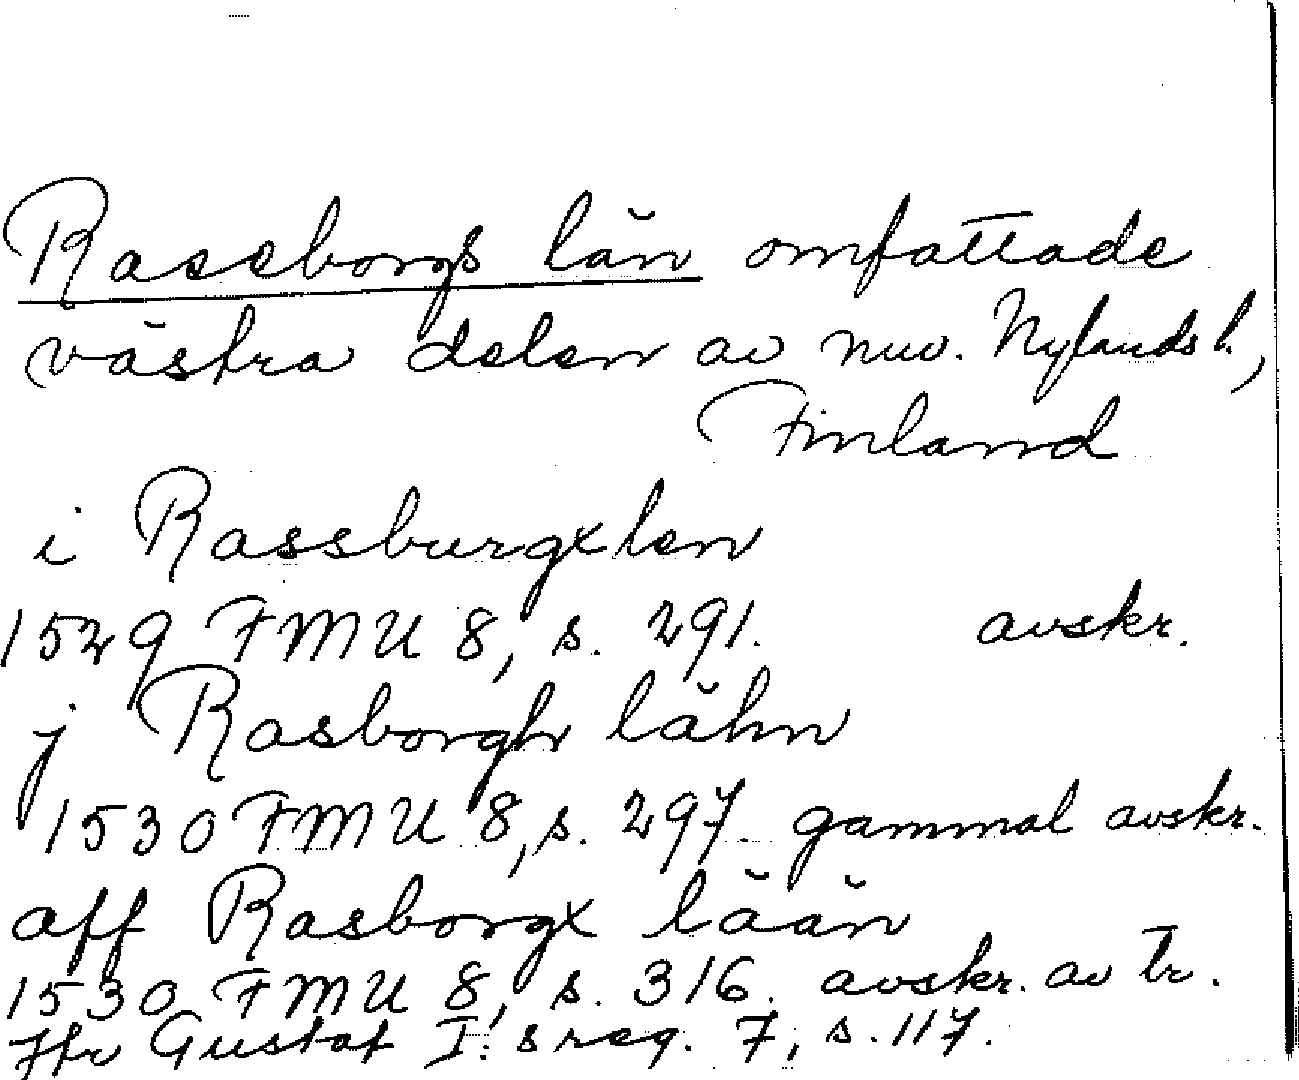 Raseborgs län omfattade
västra delen av nuv. Nylands l.,
Finland
i Rassburgx len
1529 FMU 8, s. 291. avskr.
j Rasborgh lähn
1530 FMU 8, s. 297. gammal avskr.
aff Rasborgx lään
1530 FMU 8, s. 316. avskr. av tr.
Jfr Gustaf I:s reg. 7, s. 117.